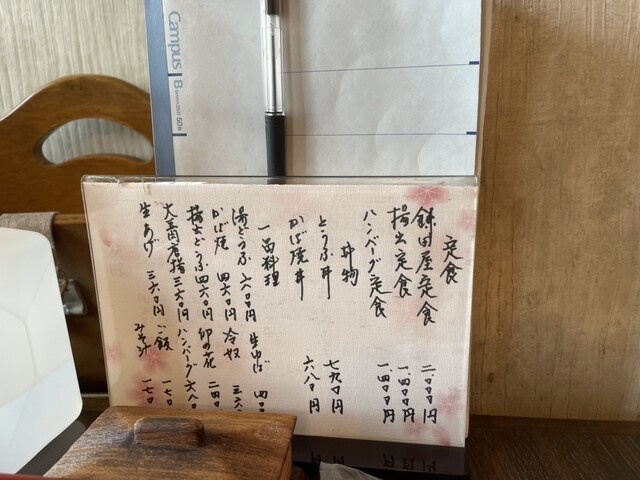 Campus
B
定食
鎌田屋定食 二.〇〇〇円
揚出定食 一.四〇〇円
ハンバーグ定食 一.四〇〇円
丼物
とうふ丼 七九〇円
かば焼丼 六八〇円
一品料理
湯どうふ 六八〇円 生ゆば
かば焼 四六〇円 冷奴
揚出どうふ 四六〇円 卯の花
大豆肉唐揚 三六〇円 ハンバーグ 六八〇
生あげ 三六〇円 ご飯 一七〇
みそ汁 一七〇